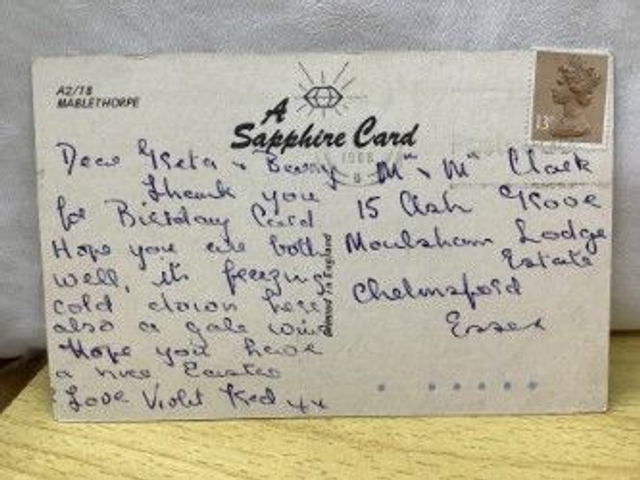 A2/18
MABLETHORPE
A
Sapphire Card
13P
1988
Dear Greta & Barry
Thank you
for Birthday Card
Hope you are both
well, it's freezing
cold down here
also a gale wind
Hope you have
a nice Easter
Love Violet Ked xx
Printed in England
Mr & Mrs Clark
15 Ash Grove
Moulsham Lodge
Estate
Chelmsford
Essex